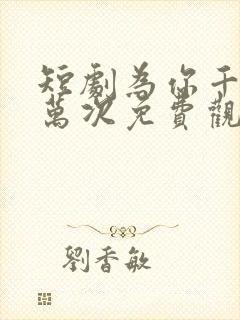 短劇為你千
萬次免費觀
劉香敏